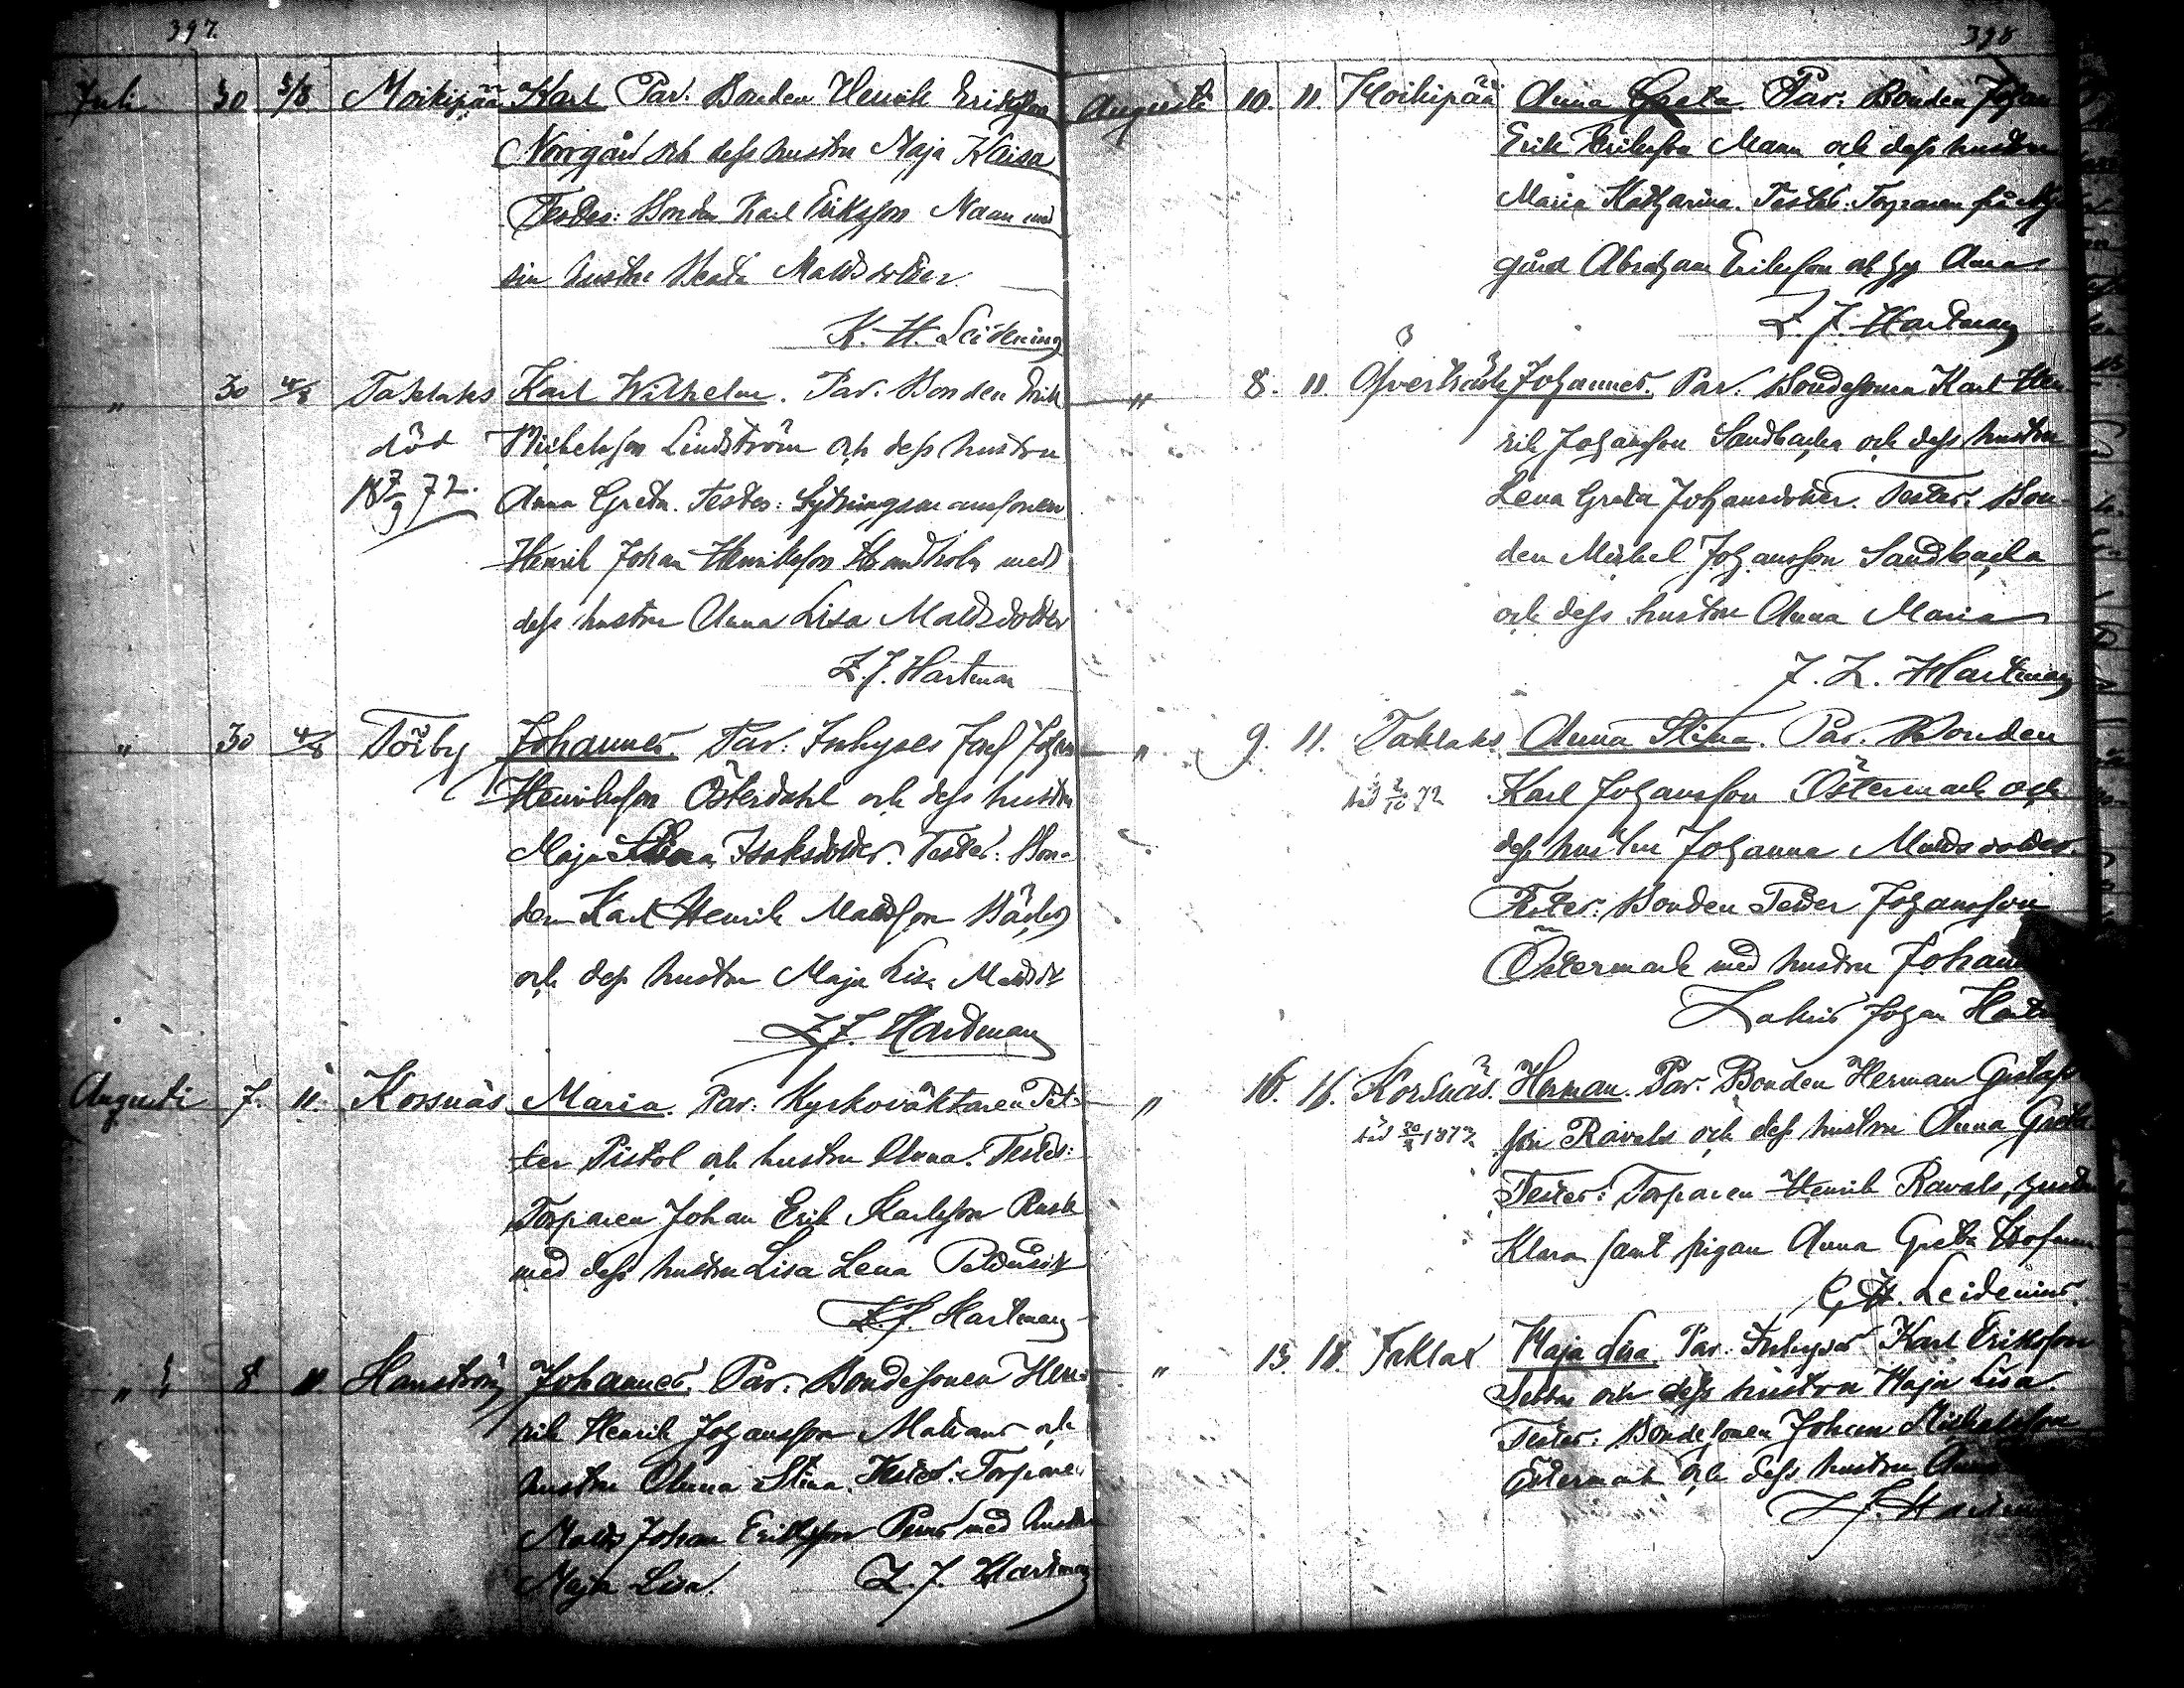 397
Juli 30 5/8 Moikipää Karl Par. Bonden Henrik Eriksson
Norrgård och dess hustru Maja Kaisa
Testes: Bonden Karl Eriksson Nann med
sin hustru Beata Mattsdotter
K. H. Leidenius
" 30 4/8 Taklaks Karl Wilhelm. Par. Bonden Erik
död Mickelsson Lindström och dess hustru
18 7/9 72. Anna Greta. Testes: Sytningsmanssonen
Henrik Johan Henriksson med
dess hustru Anna Lisa Mattsdotter
Z. J. Hartman
" 30 4/8 Töjby Johannes. Par. Inhyses Johan
Henriksson Österdahl och dess hustru
Maja Stina Isaksdotter. Testes: Bon-
den Karl Henrik Mattsson Bäck
och dess hustru Maja Lisa Mattsdr
Z. J. Hartman
Augusti 7. 11. Korsnäs Maria. Par: Kyrkoväktaren Pet-
ter Pistol och hustru Anna. Testes:
Torparen Johan Erik Karlsson Rusk
med dess hustru Lisa Lena Pettersdr
Z. J. Hartman
" 8 11. Harrström Johannes. Par. Bondesonen Hen-
rik Henrik Johansson och
hustru Anna Stina. Testes: Torparen
Matts Johan Eriksson med hustru
Maja Lisa. Z. J. Hartman
398
Augusti 10. 11. Moikipää Anna Greta Par: Bonden Johan
Erik Eriksson Mann och dess hustru
Maria Katharina. Testes: Torparen på
gård Abraham Eriksson och h. Anna
Z. J. Hartman
" 8. 11. Öfverträsk Johannes. Par. Bondesonen Karl Hen
rik Johansson Sandbacka och dess hustru
Lena Greta Johansdotter. Testes. Bon-
den Mickel Johansson Sandbacka
och dess hustru Anna Maria
Z. J. Hartman
" 9. 11. Taklaks. Anna Stina. Par. Bonden
död 2/10 72 Karl Johansson Östermark och
dess hustru Johanna Mattsdotter.
Testes: Bonden Peter Johansson
Östermark med hustru Johan
Zakris Johan Hart
" 16. 16. Korsnäs. Herman. Par. Bonden Herman Gustafs
död 1873 son Ravals och dess hustru Anna Greta
Testes: Torparen Henrik Ravals, hustru
Klara samt pigan Anna Greta
G. H. Leidenius.
" 15. 18. Taklax Maja Lisa Par: Inhyses Karl Eriksson
och dess hustru Maja Lisa.
Testes: Bondesonen Johan Mickelsson
Östermark och dess hustru Anna
Z. J. Hartman